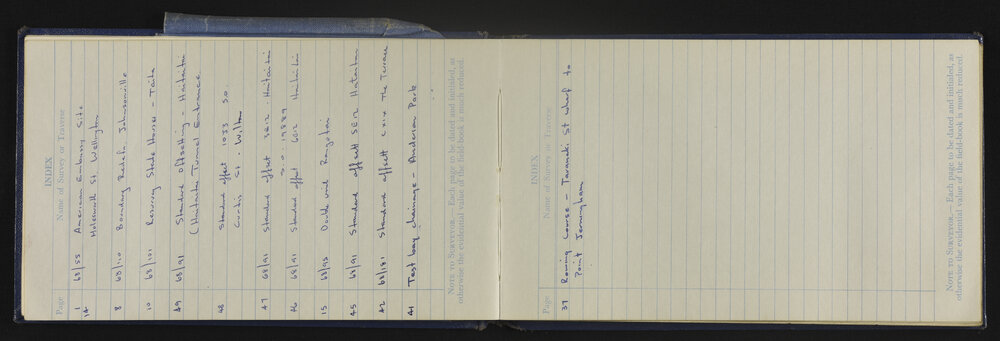 INDEX
Page Name of Survey or Traverse
1 63/55 American Embassy Site
14 Molesworth St. Wellington
8 63/110 Boundary Redefn Johnsonville
10 63/101 Rowing State House - Taita
49 68/91 Standard Offsetting - Hataitai
(Hataitai Tunnel Entrance
48 Standard offset 1033 S.O.
Curtis St. Wilton
47 68/91 Standard offset SE12 Hataitai
S.O. 19889
46 68/91 Standard offset Hataitai
15 63/95 Double unit Rangotai
45 68/91 Standard offsett SE12 Hataitai
42 66/181 Standard offsett CXIX The Terrace
41 Test bay chainage - Anderson Park
NOTE TO SURVEYOR.—Each page to be dated and initialed, as
otherwise the evidential value of the field-book is much reduced.
INDEX
Page Name of Survey or Traverse
37 Rowing Course - Taranaki St wharf to
Point Jerningham
NOTE TO SURVEYOR.—Each page to be dated and initialed, as
otherwise the evidential value of the field-book is much reduced.